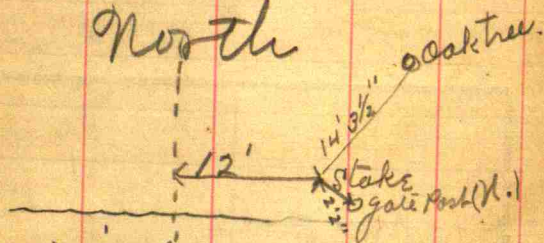 North
Oaktree.
14' 3½"
12'
Stake
2'2"
gate Post (N.)